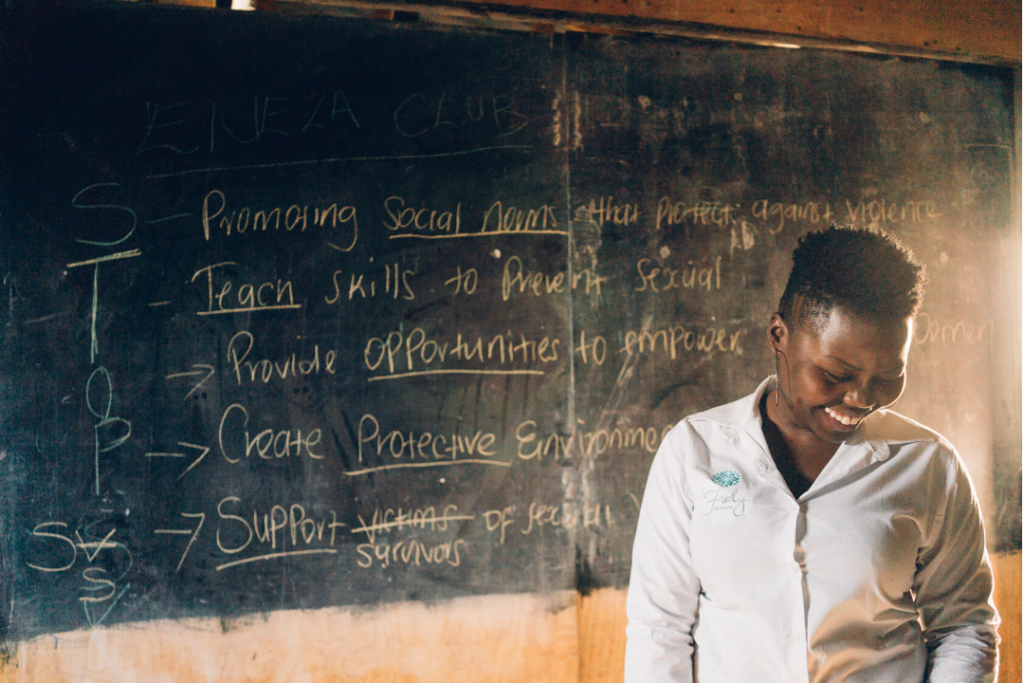 ENEZA CLUB
S — Promoting Social norms that protect against violence
T — Teach skills to Prevent sexual
O → Provide opportunities to empower women
P → Create Protective Environme
SV → Support victims of sexual
survivors
S